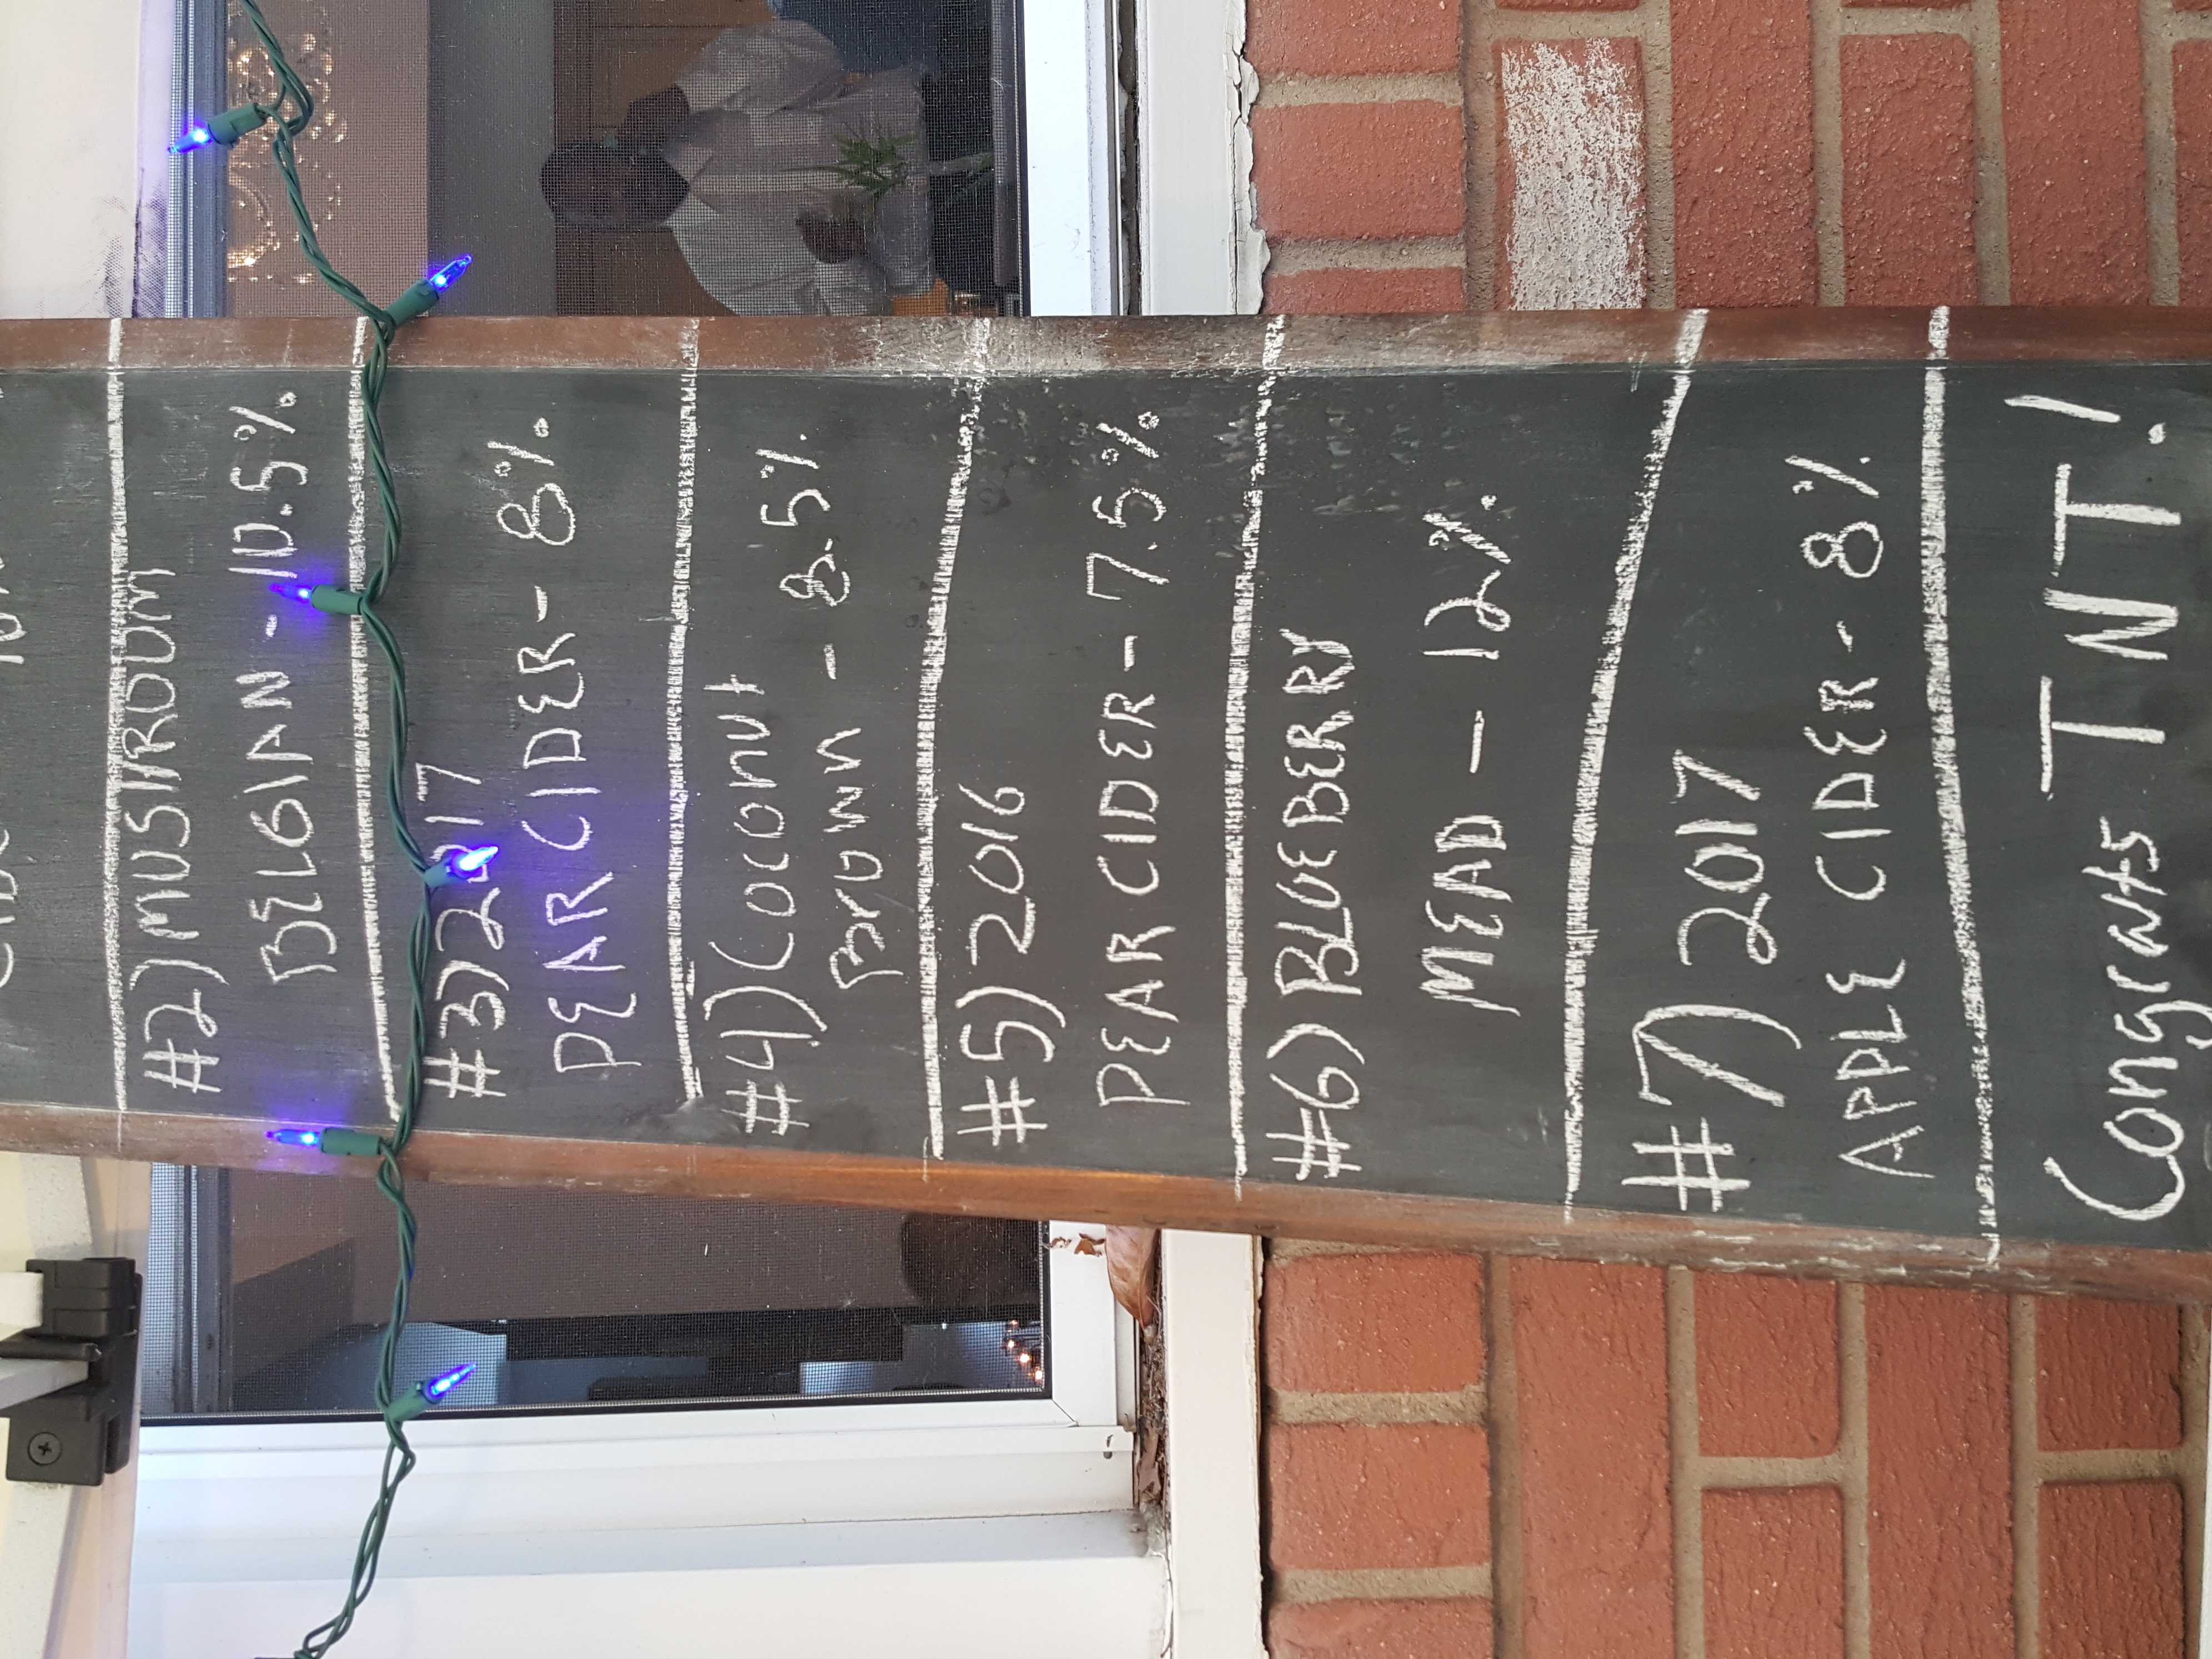 #2) MUSHROOM
BELGIAN - 10.5%
#3) 2017
PEAR CIDER - 8%
#4) Coconut
Brown - 8.5%
#5) 2016
PEAR CIDER - 7.5%
#6) BLUEBERRY
MEAD - 12%
#7) 2017
APPLE CIDER - 8%
Congrats TNT!